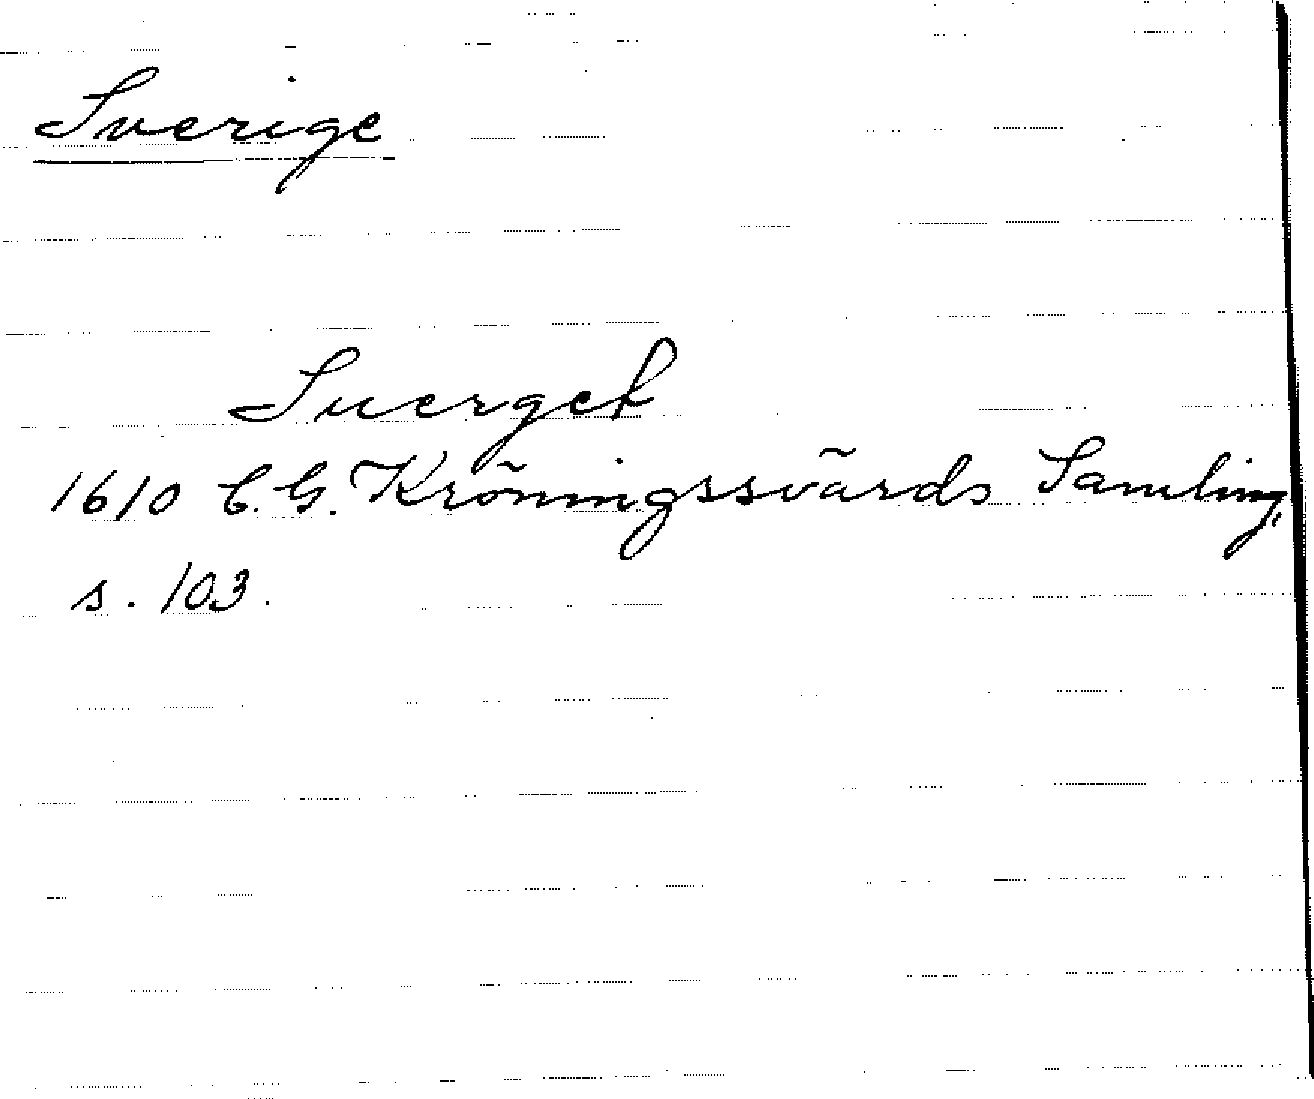 Sverige
Suerget
1610 C. G. Kröningssvärds Samling,
s. 103.